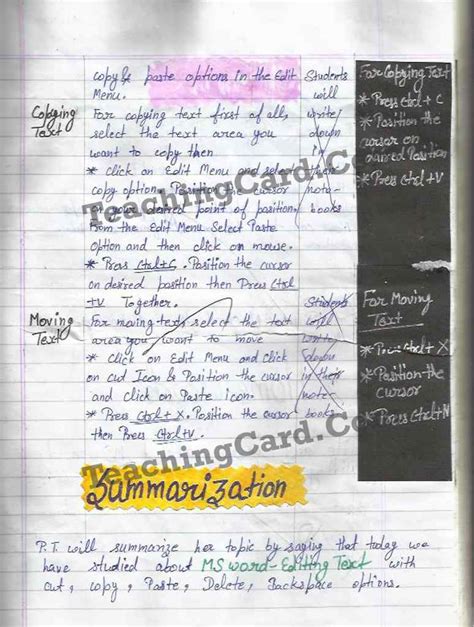 copy & paste options in the Edit
Menu.
Copying
Text
For copying text first of all,
select the text area you
want to copy then
* Click on Edit Menu and select
copy option. Position the cursor
on your desired point of position.
From the Edit Menu Select Paste
Option and then click on mouse.
* Press Ctrl+C. Position the cursor
on desired position then Press Ctrl
+V Together.
Students
will
write
down
in
their
note-
books
For Copying Text
* Press Ctrl + C
* Position the
cursor on
desired Position
* Press Ctrl+V
TeachingCard.Com
Moving
Text
For moving text, select the text
area you want to move
* Click on Edit Menu and Click
on cut Icon & Position the cursor
and click on Paste icon.
* Press Ctrl + X. Position the cursor
then Press Ctrl+V.
Students
will
write
down
in their
note-
books
For Moving
Text
* Press Ctrl+X
* Position the
cursor
* Press Ctrl+V
TeachingCard.Com
Summarization
P.T. will summarize her topic by saying that today we
have studied about MS word-Editing Text with
Cut, Copy, Paste, Delete, Backspace options.